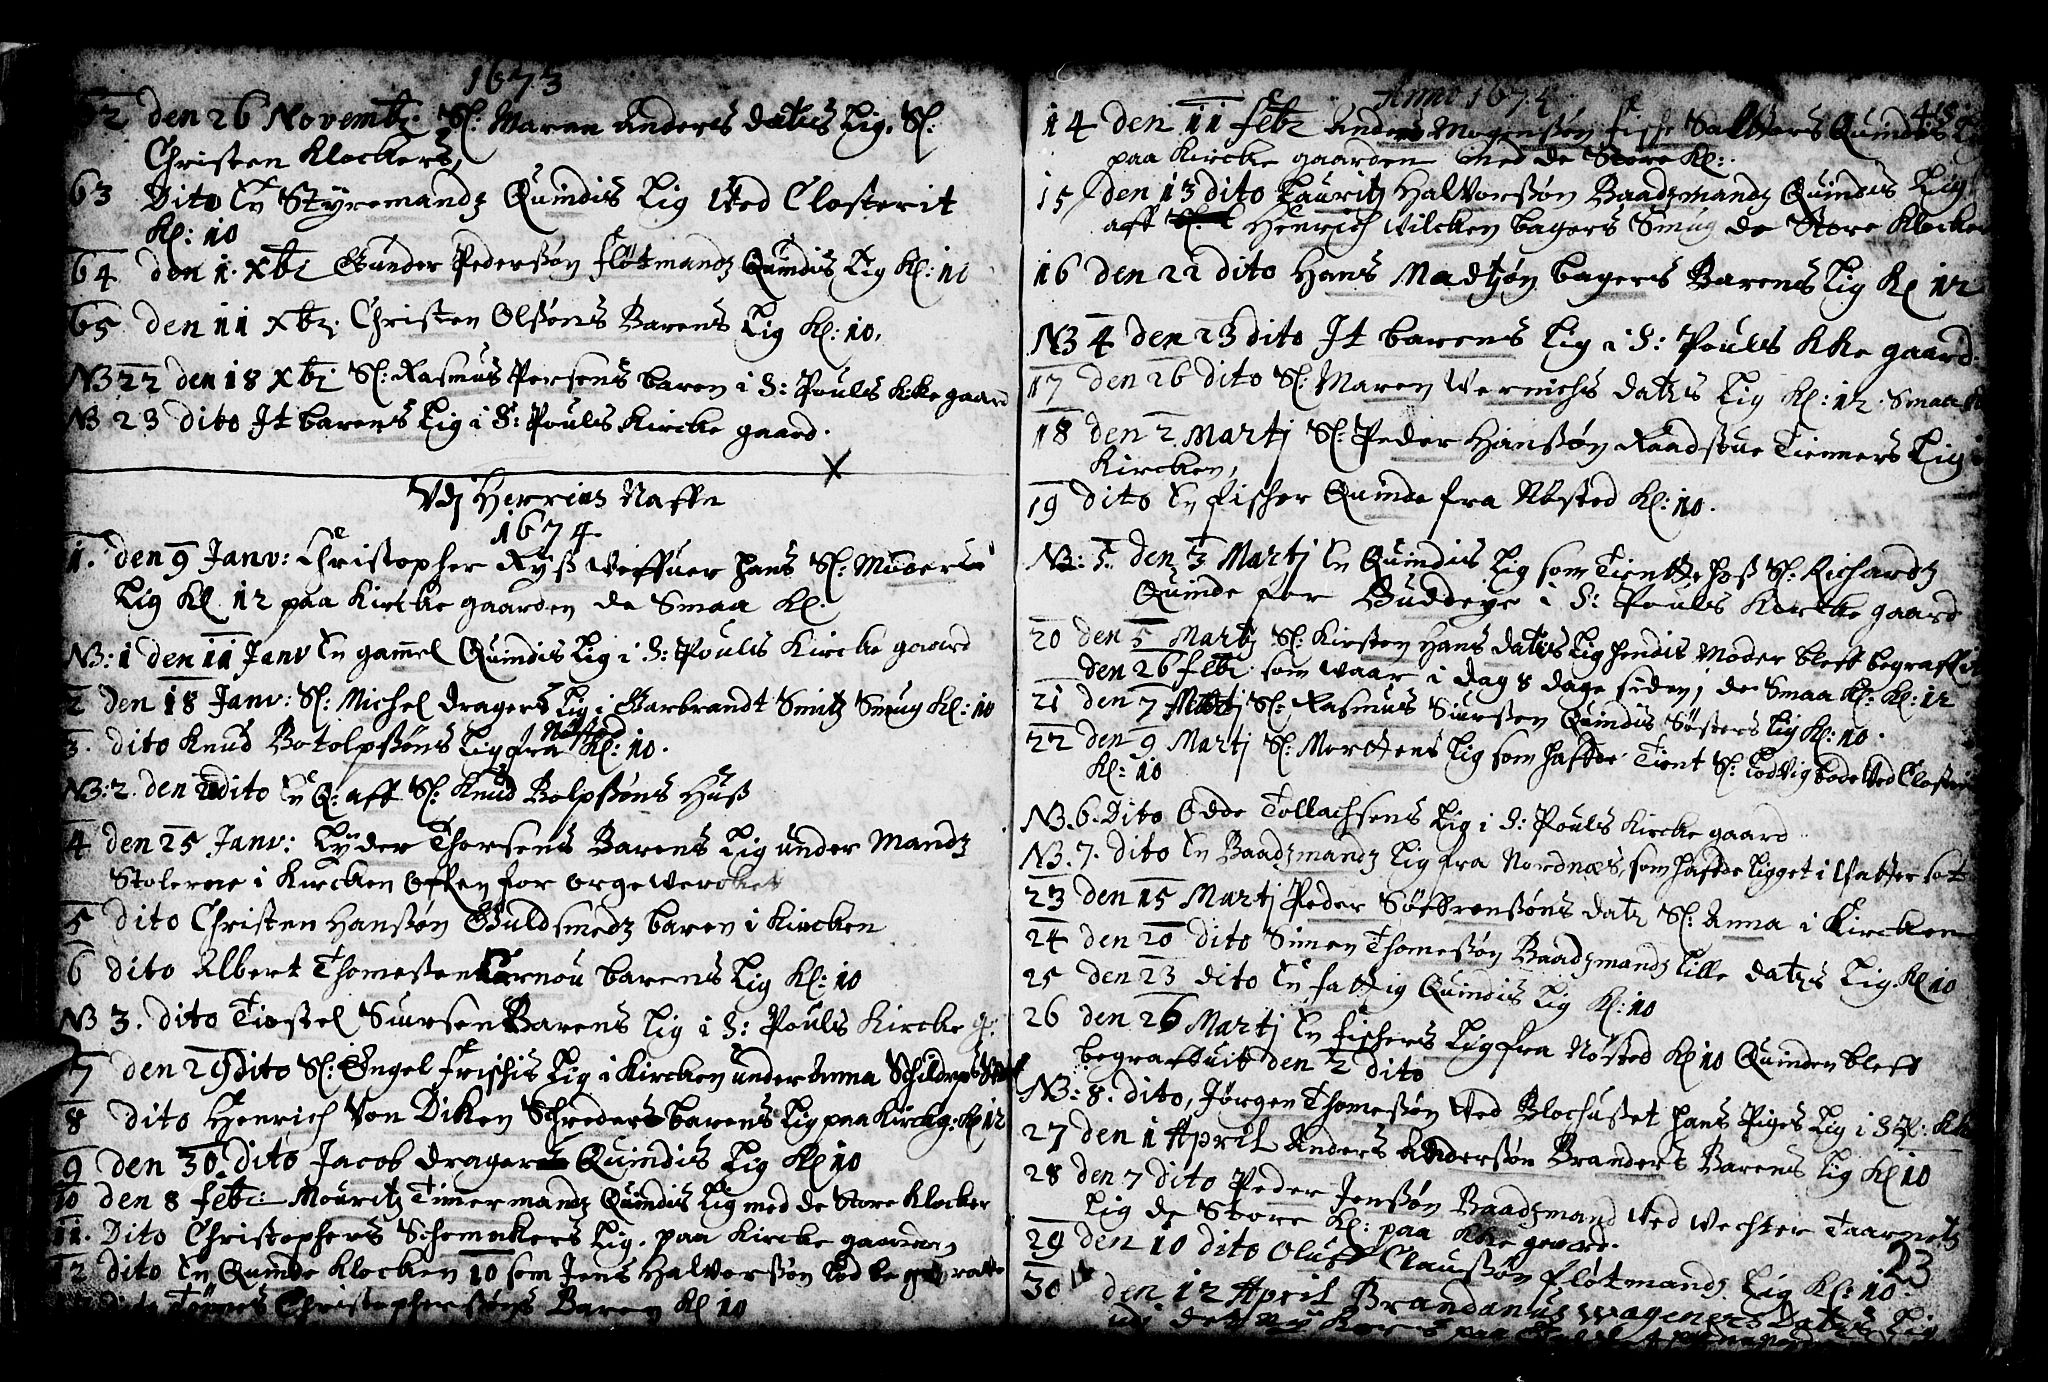 1673
62 den 26 Novembr: Sl: Maren Anders Daters Lig. Sl:
Christen Klockers,
63 Dito En Styremandz Quindis Lig Ved Closterit
Kl: 10
64 den 1. Xbr Gunder Pederssøn fløtmandz Quindis Lig Kl: 10
65 den 11 Xbr: Christen Olssøns Barens Lig Kl: 10.
NB 22 den 18 Xbr Sl: Rasmus Persens baren i S: Pouls Kirke gaard
NB 23 dito It barens Lig i S: Pouls Kircke gaard.
Vdj Herrins Naffn
1674
1. den 9 Janv: Christopher Ryß Veffuer hans Sl: Moders
Lig Kl 12 paa Kircke gaarden de Smaa Kl.
NB: 1 den 11 Janv En gammel Quindis Lig i S: Pouls Kircke gaard
2 den 18 Janv: Sl: Michel Dragers Lig i Garbrandt Smitz Smug Kl: 10
3. dito Knud Botolpssøns Lig fra Nøsted Kl: 10.
NB: 2. den dito En Q: aff Sl: Knud Bolpssøns Huß
4 den 25 Janv: Lyder Thorsens Barens Lig under Mandz
Stolerne i Kircken Offen for orgewercket
5 dito Christen Hanssøn Guldsmedz baren i Kircken
6 dito Albert Thomessen barens Lig Kl: 10
NB 3. dito Tiostel Siursen Barens Lig i S: Pouls Kircke g:
7 den 29 Dito Sl: Engel Frischis Lig i Kircken under Anna Schilderups
8 dito Henrich Von Diken Schreders barens Lig paa Kirckg: Kl 12
9 den 30. dito Jacob Dragers Quindis Lig Kl 10
10 den 8 febr: Mouritz Timermandz Quindis Lig med de Store Klocker
11. Dito Christophers Schomakers Lig. paa Kircke gaarden
12 dito En Quinde Klocken 10 som Jens Halvorssøn lod begraffue
dito Tønnes Christopherssøns Baren Kl 10
Anno 1674
48
14 den 11 febr Anders Mogenssøn fische Salters Quindis Lig
paa Kircke gaarden med de Store Kl:
15 den 13 dito Lauritz Halvorssøn Baadzmandz Quindis Lig
aff Henrich Vilcken bagers Smug de Store Klocker
16 den 22 dito Hans Madtzøn bagers Barens Lig Kl 12
NB 4 den 23 dito It barens Lig i S: Pouls Kke gaard:
17 den 26 dito Sl: Maren Vernichs Daters Lig Kl: 12 Smaa Kl
18 den 2 Martj Sl: Peder Hanssøn Raadstue Tienners Lig i
Kircken,
19 dito En fischer Quinde fra Nøsted Kl: 10.
NB: 5. den 3 Martj En Quindis Lig som Tientte hoß Sl: Richardz
Quinde for Buddeye i S: Pouls Kircke gaard
20 den 5 Martj Sl: Kirsten Hans Daters Lig hendis Moder bleff begraffuit
den 26 febr som waar i dag 8 dage siden, de Smaa Kl: Kl: 12
21 den 7 Martj Sl: Rasmus Siurssen Quindis Søsters Lig Kl: 10.
22 den 9 Martj Sl: Mortens Lig som haffde Tient Sl: Lodvig bode Ved Closterit
Kl: 10
NB 6. Dito Odde Tollachsens Lig i S: Pouls Kircke gaard
NB. 7. dito En Baadzmandz Lig fra Nordnæs, som haffde Ligget i Vatter sot
23 den 15 Martj Peder Søffrenssøns Datr Sl: Anna i Kircken
24 den 20 dito Simen Thomessøn Baadzmandz Lille Daters Lig. Kl 10
25 den 23 dito En fattig Quindis Lig Kl: 10
26 den 26 Martj En fischers Lig fra Nøsted Kl 10 Quinden bleff
begraffuit den 2 dito
NB: 8. dito, Jørgen Thomessøn Ved Blochuset hans Piges Lig i S: P: Kke
27 den 1 April Anders Anderssøn Branders Barens Lig Kl 10
28 den 7 dito Peder Jenssøn Baadzmand Ved Vechter Taarnetz
Lig de Store Kl: paa Kke gaard.
29 den 10 dito Oluff Claussøn fløtmandz Lig Kl: 10.
23
30 den 12 April Brandanus Wageners Daters Lig
udi det ny Kors paa